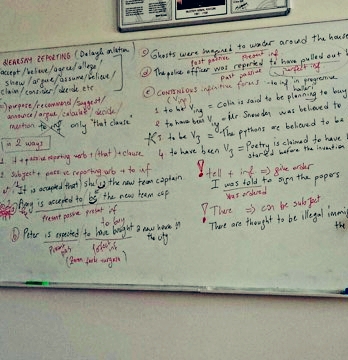 HEARSAY REPORTING (
accept / believe / agree / allege
show / argue / assume / believe /
claim / consider / decide etc
purpose / recommend / suggest /
announce / argue / calculate / decide
mention to inf only "that clause"
in 2 ways
1 it + passive reporting verb + (that) + clause
2 Subject + passive reporting verb + to inf
It is accepted that she is the new team captain
is accepted to be the new team cap
present passive present inf
to buy
b) Peter is expected to have bought a new house in
the city
Present perfect
pas inf
c) Ghosts were imagined to wander around the house
past passive present inf
d) The police officer was reported to have pulled out
past passive perfect inf
e) CONTINUOUS infinitive forms to inf in progressive
1 to be Ving = Colin is said to be planning to buy
2 to have been Ving = Mr Snowden was believed to
3 to be V3 = The pythons are believed to be
4 to have been V3 = Poetry is claimed to have
started before the invention
! tell + inf => give order
I was told to sign the papers
was ordered
! There => can be subject
There are thought to be illegal immig
the